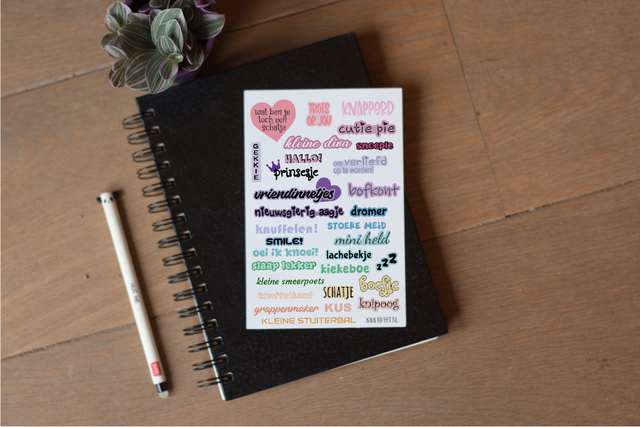 wat ben je
toch een
schatje
TROTS
OP JOU
KNAPPERD
cutie pie
kleine diva
snoepie
GEKKIE
HALLO!
prinsesje
om verliefd
op te worden!
vriendinnetjes
bofkont
nieuwsgierig aagje
dromer
knuffelen!
STOERE MEID
SMILE!
mini held
oei ik knoei!
lachebekje
slaap lekker
kiekeboe
zzz
kleine smeerpoets
boefje
knuffelkont
SCHATJE
knipoog
grappenmaker
KUS
KLEINE STUITERBAL